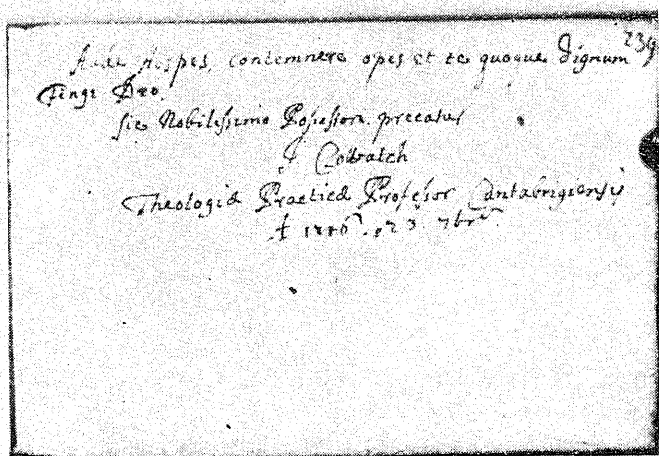 Aude Hospes contemnere opes et te quoque dignum 239
Finge Deo.
sic Nobilissimo Possessori precatur
J Colbatch
Theologiæ Practicæ Professor Cantabrigiensis
23 7br